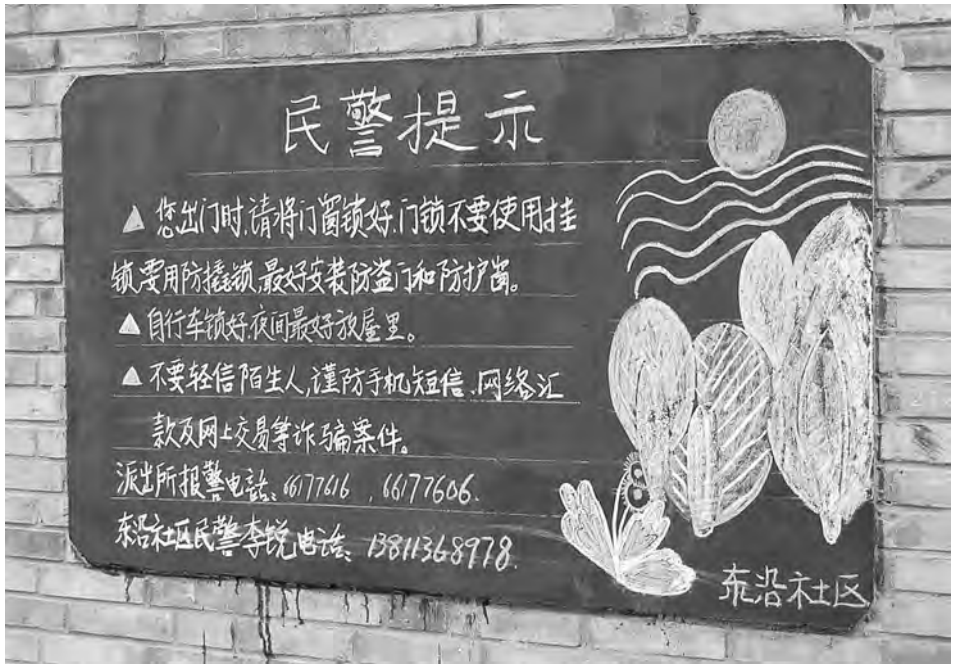 民警提示
▲ 您出门时,请将门窗锁好,门锁不要使用挂
锁,要用防撬锁,最好安装防盗门和防护窗。
▲ 自行车锁好,夜间最好放屋里。
▲ 不要轻信陌生人,谨防手机短信、网络汇
款及网上交易等诈骗案件。
派出所报警电话:66177616 , 66177606.
东沿社区民警李锐电话: 13811368978.
东沿社区